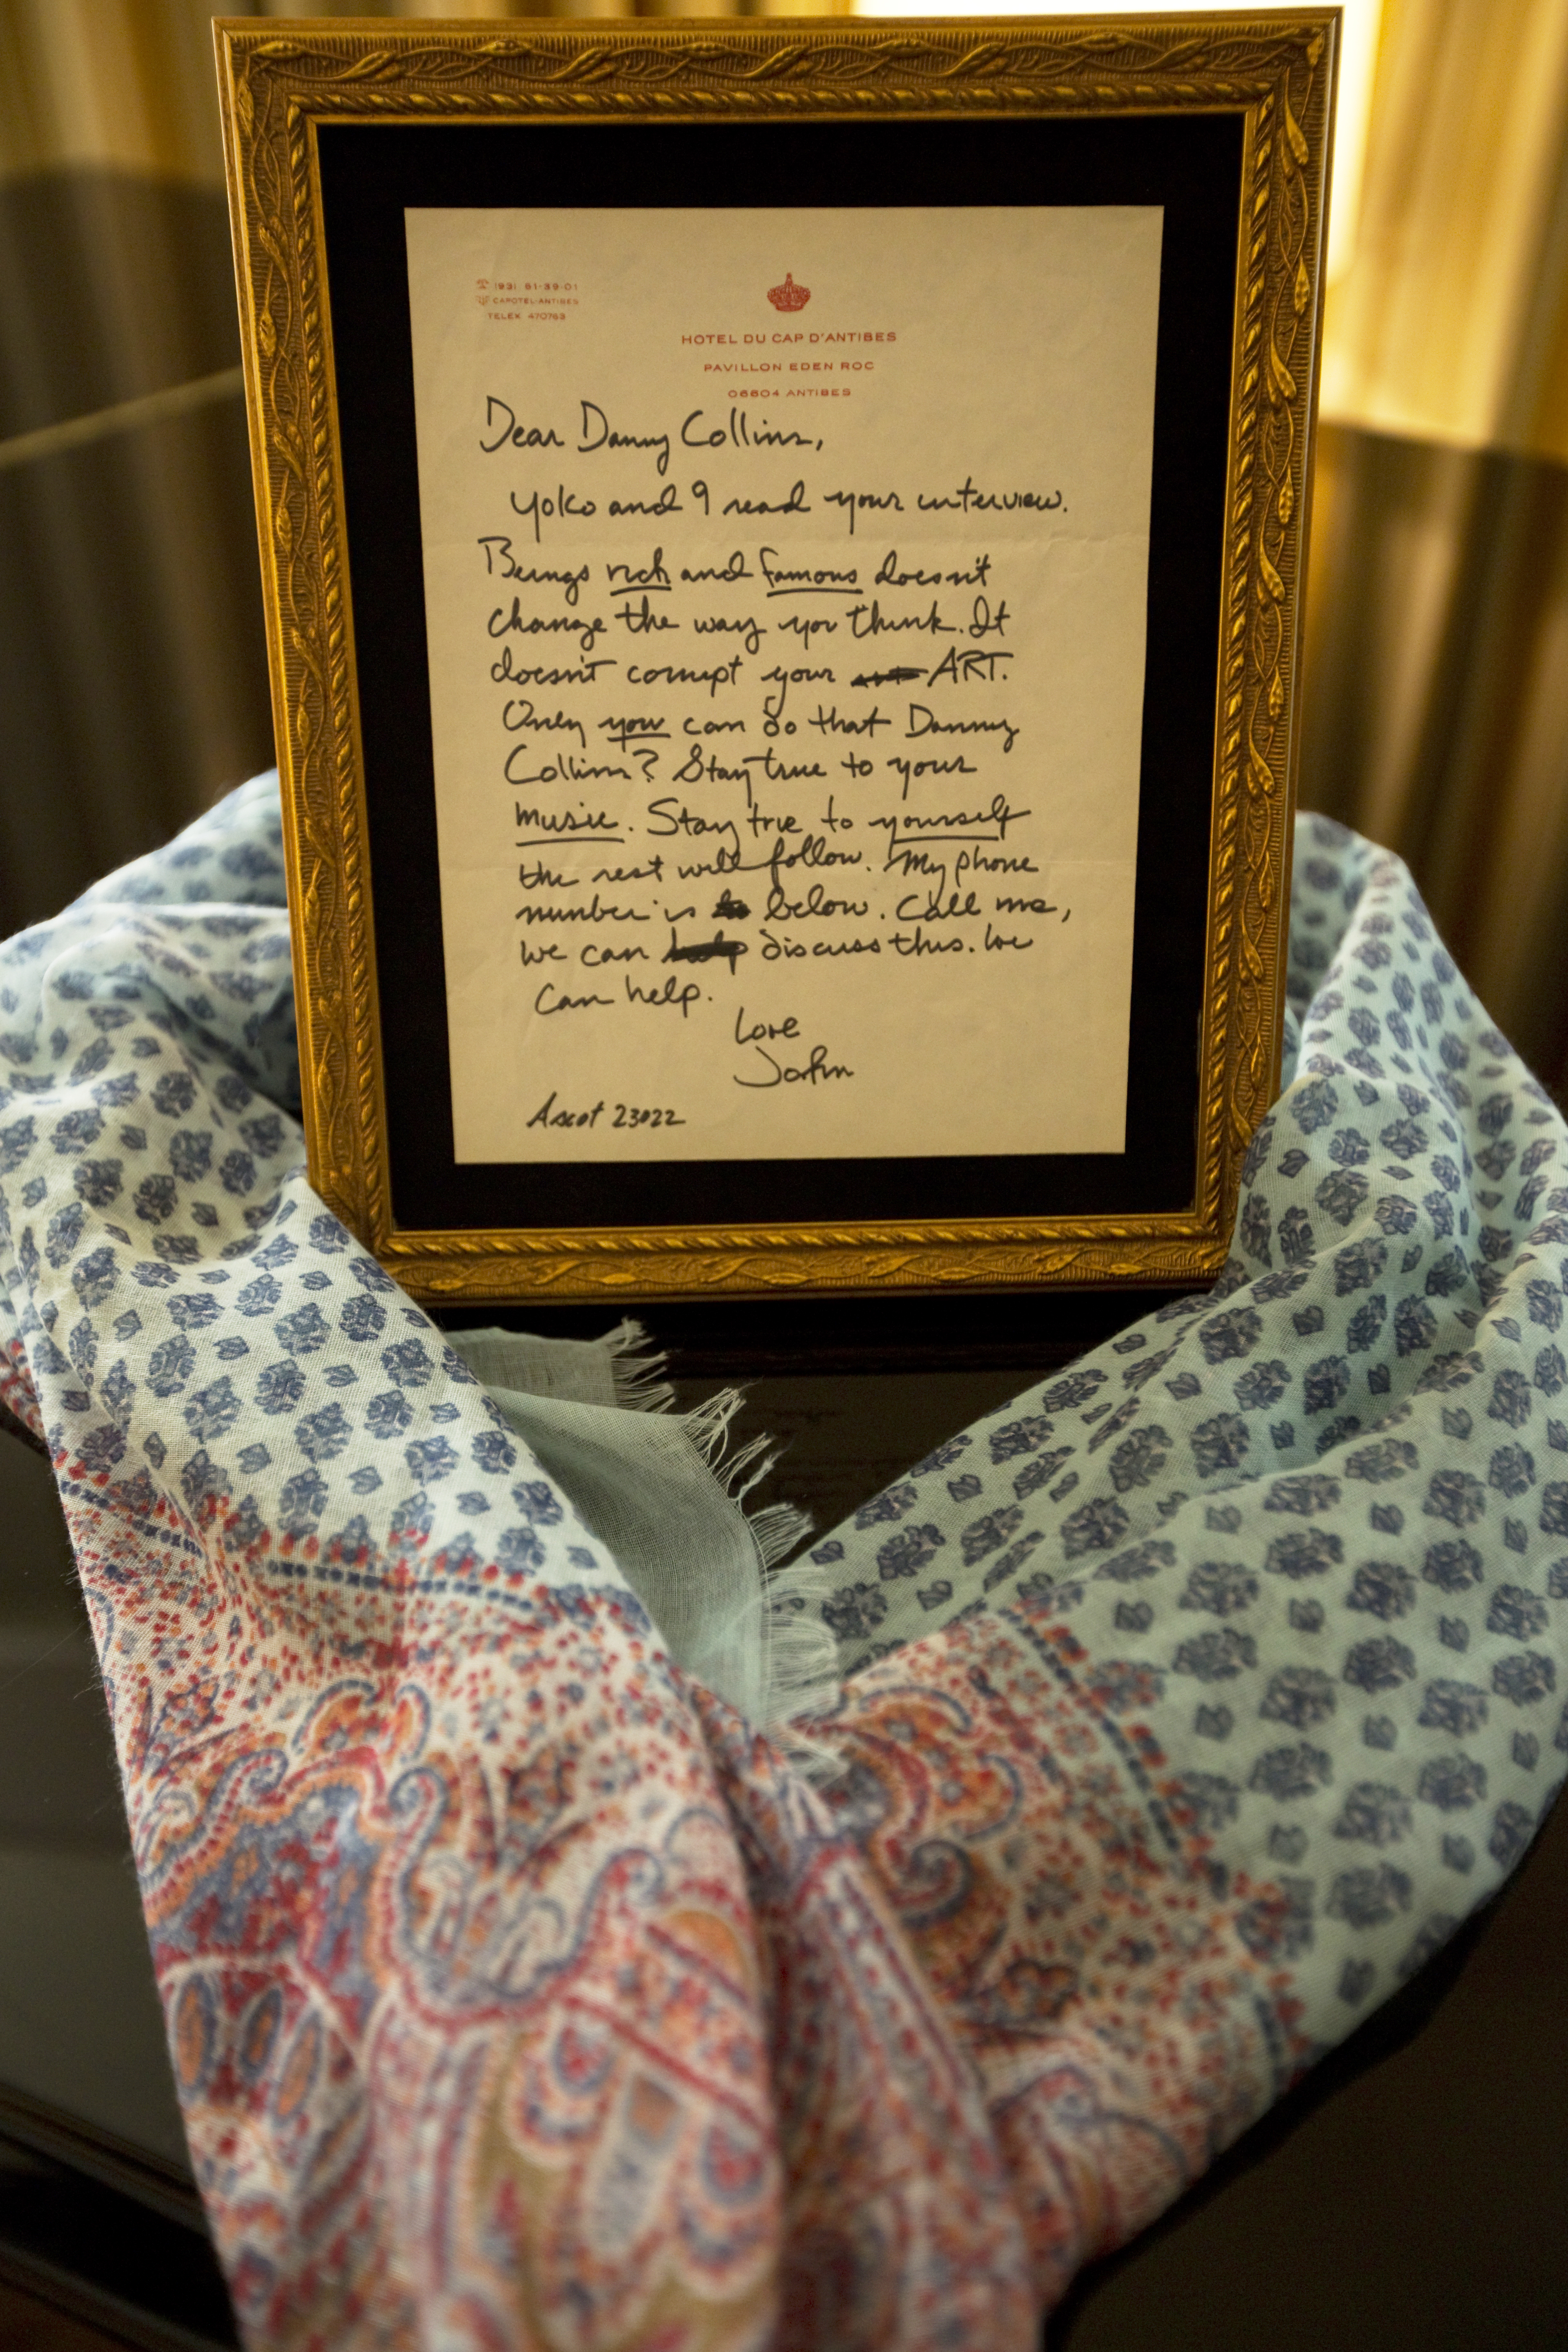 (93) 61-39-01
CAPOTEL-ANTIBES
TELEX 470763
HOTEL DU CAP D'ANTIBES
PAVILLON EDEN ROC
06604 ANTIBES
Dear Danny Collins,
Yoko and I read your interview.
Beings rich and famous doesn't
change the way you think. It
doesn't corrupt your ART.
Only you can do that Danny
Collins? Stay true to your
music. Stay true to yourself
the rest will follow. My phone
number is below. Call me,
we can discuss this. We
can help.
Love
John
Ascot 23022